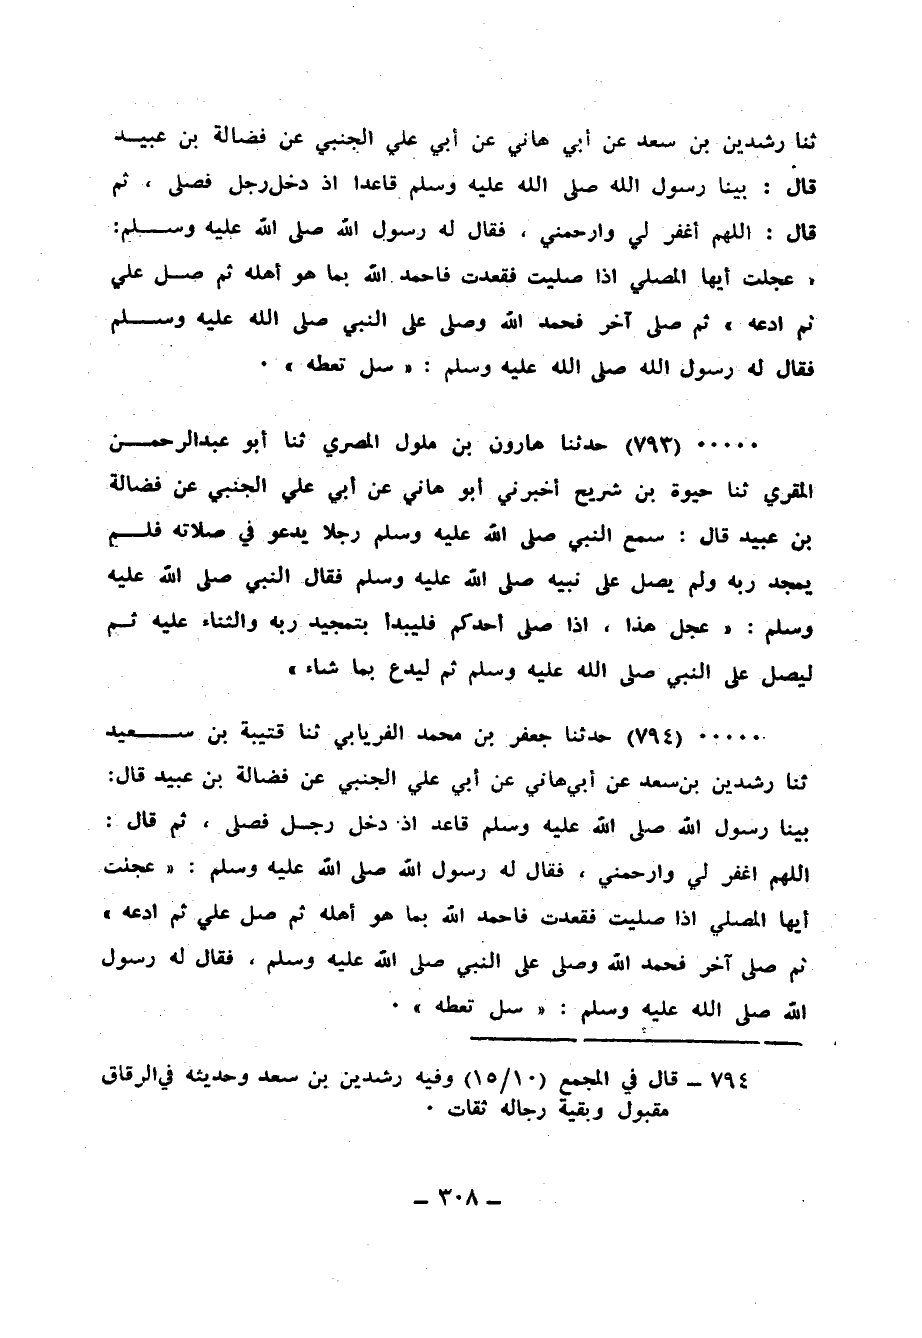 ثنا رشدين بن سعد عن أبي هاني عن أبي علي الجنبي عن فضالة بن عبيـد
قال : بينا رسول الله صلى الله عليه وسلم قاعدا اذ دخل رجل فصلى ، ثم
قال : اللهم أغفر لي وارحمني ، فقال له رسول الله صلى الله عليه وسـلم:
« عجلت أيها المصلي اذا صليت فقعدت فاحمد الله بما هو أهله ثم صـل علي
ثم ادعه » ثم صلى آخر فحمد الله وصلى على النبي صلى الله عليه وسـلم
فقال له رسول الله صلى الله عليه وسلم : « سل تعطه » ٠
٠٠٠٠٠ (٧٩٣) حدثنا هارون بن ملول المصري ثنا أبو عبدالرحمـن
المقري ثنا حيوة بن شريح أخبرني أبو هاني عن أبي علي الجنبي عن فضالة
بن عبيد قال : سمع النبي صلى الله عليه وسلم رجلا يدعو في صلاته فلـم
يمجد ربه ولم يصل على نبيه صلى الله عليه وسلم فقال النبي صلى الله عليه
وسلم : « عجل هذا ، اذا صلى أحدكم فليبدأ بتمجيد ربه والثناء عليه ثـم
ليصل على النبي صلى الله عليه وسلم ثم ليدع بما شاء »
٠٠٠٠٠ (٧٩٤) حدثنا جعفر بن محمد الفريابي ثنا قتيبة بن سـعيد
ثنا رشدين بن سعد عن أبي هاني عن أبي علي الجنبي عن فضالة بن عبيد قال:
بينا رسول الله صلى الله عليه وسلم قاعد اذ دخل رجـل فصلى ، ثم قال :
اللهم اغفر لي وارحمني ، فقال له رسول الله صلى الله عليه وسلم : « عجلت
أيها المصلي اذا صليت فقعدت فاحمد الله بما هو أهله ثم صل علي ثم ادعه »
ثم صلى آخر فحمد الله وصلى على النبي صلى الله عليه وسلم ، فقال له رسول
الله صلى الله عليه وسلم : « سل تعطه » ٠
٧٩٤ ـ قال في المجمع (١٥/١٠) وفيه رشدين بن سعد وحديثه في الرقاق
مقبول وبقية رجاله ثقات ٠
ـ ٣٠٨ ـ